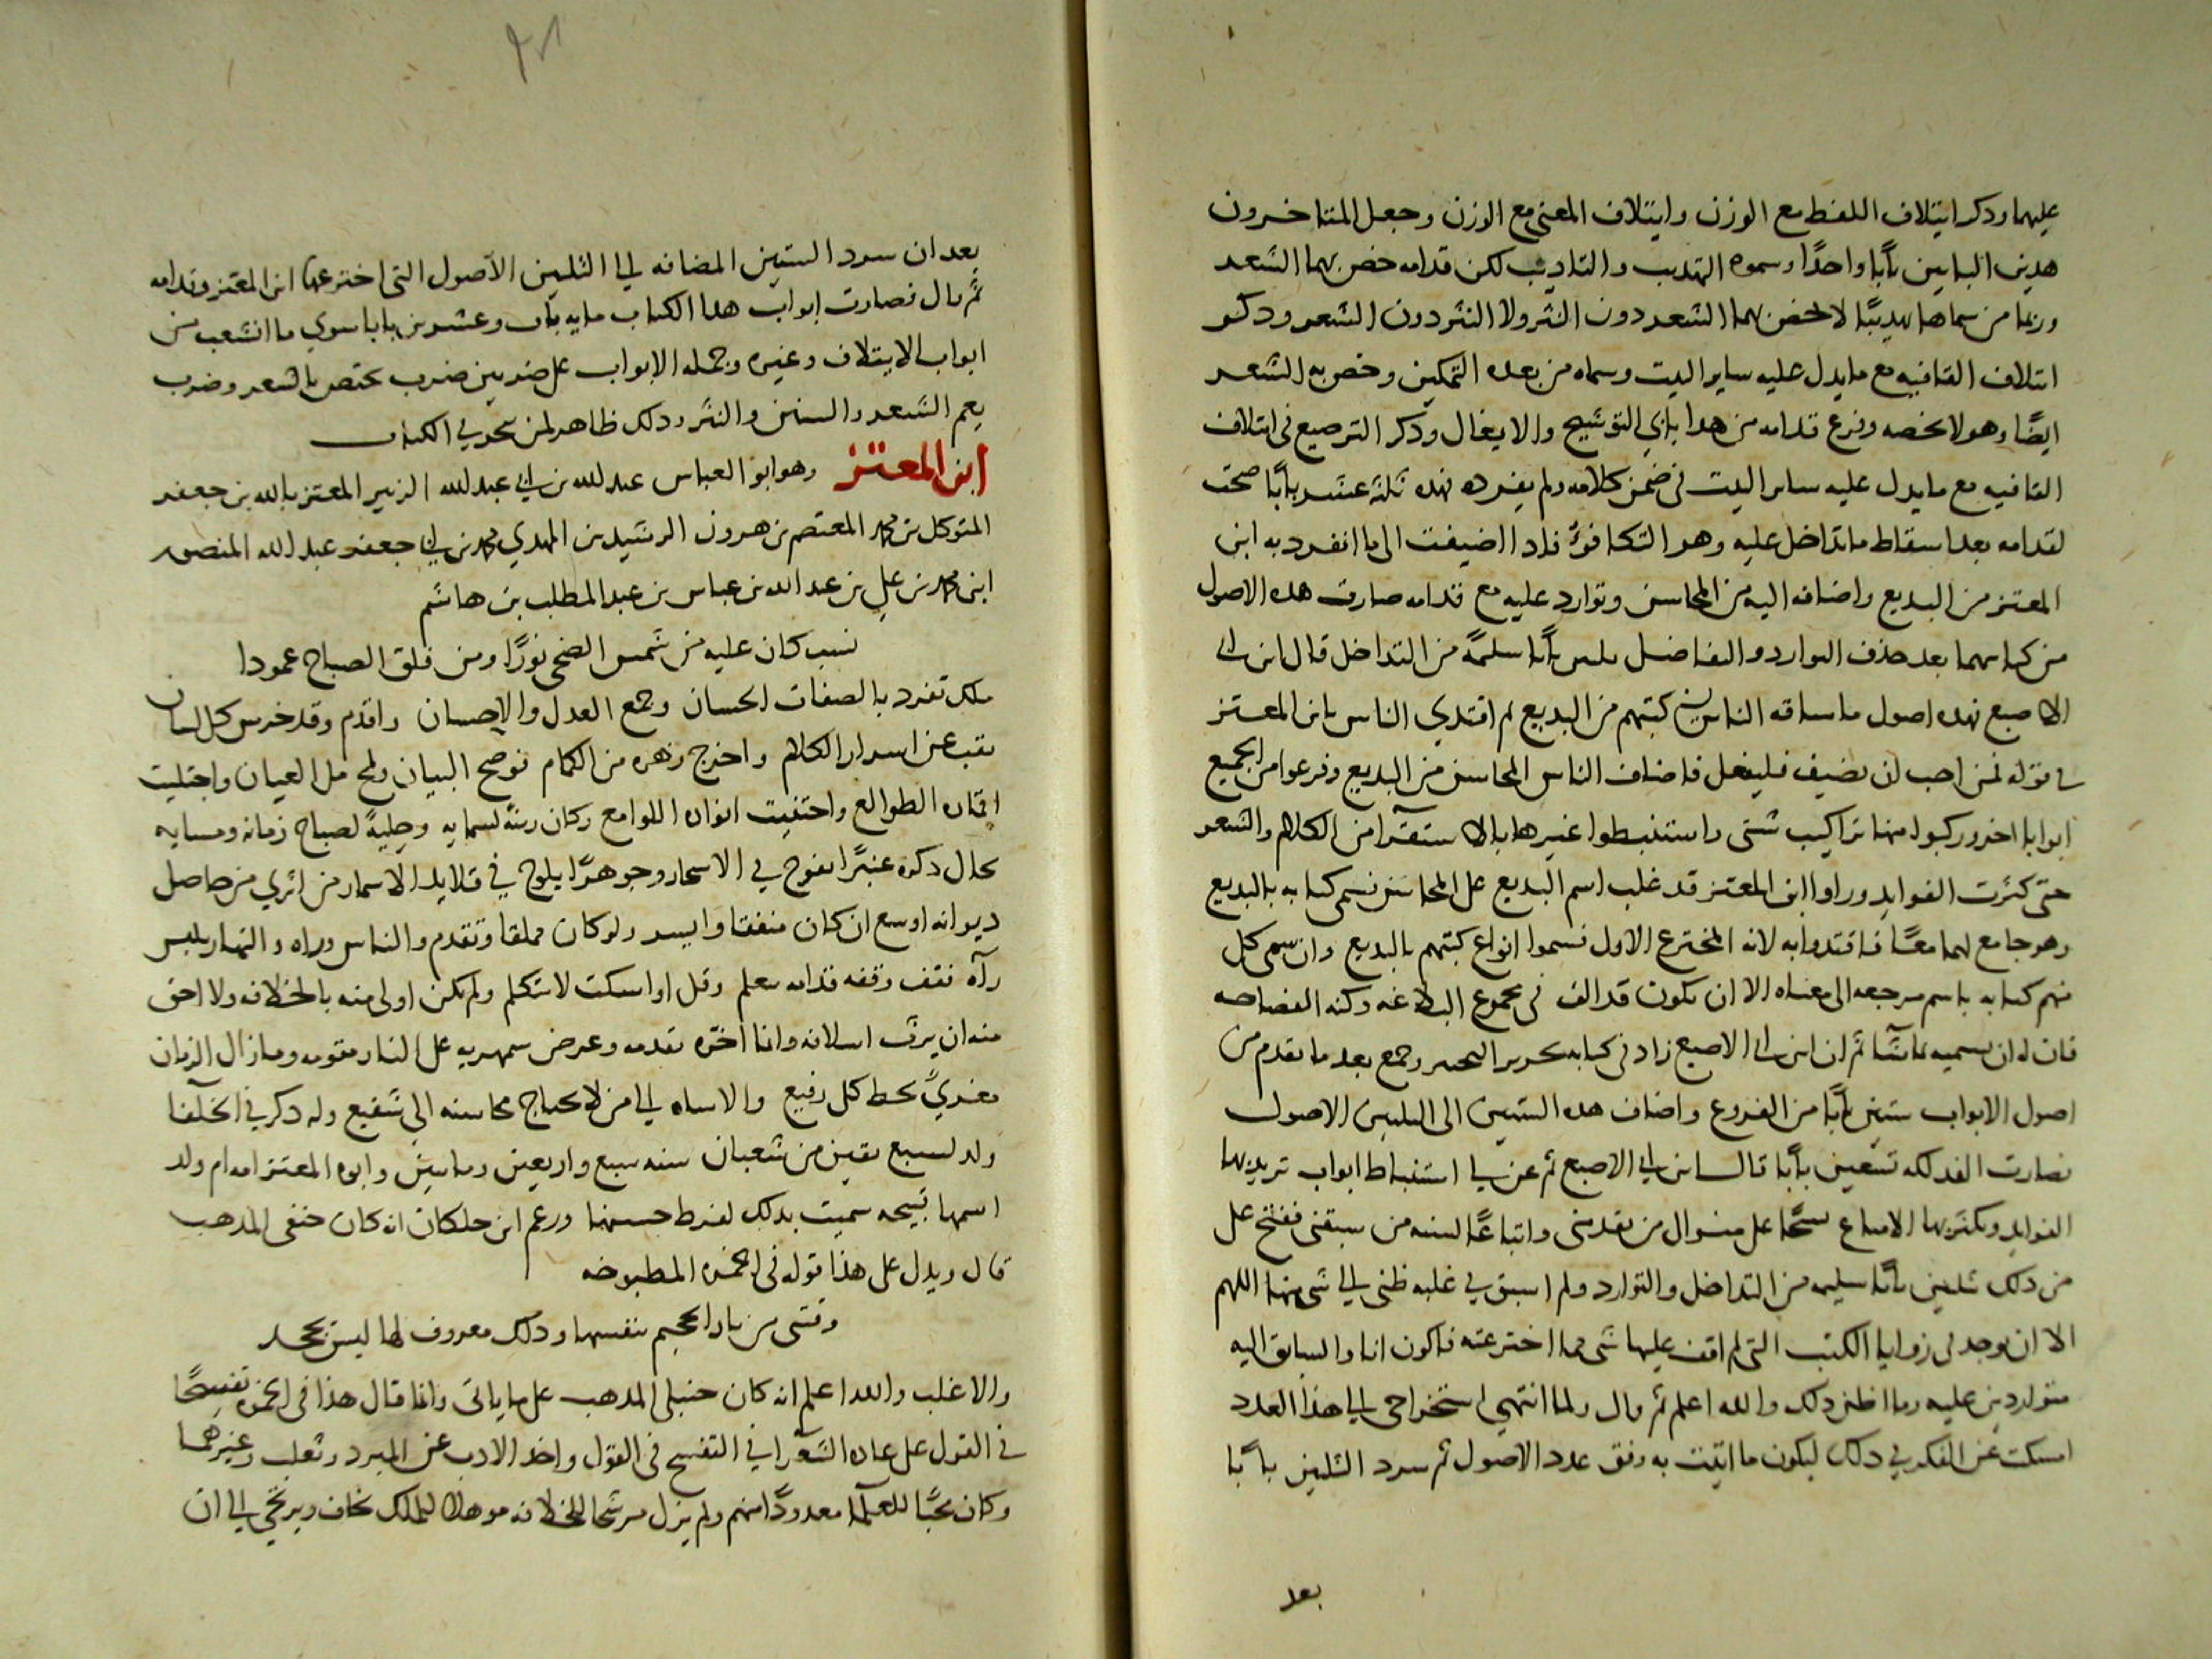 عليهما وذكر ايتلاف اللفظ مع الوزن وايتلاف المعنى مع الوزن وجعل المتاخرون
هذين البابين بابًا واحدًا وسموه التهذيب والتاديب لكن قدامه خص بهما الشعر
وربما من سماها تهذيبًا لا يخص بهما الشعر دون النثر ولا النثر دون الشعر وذكر
ائتلاف القافيه مع ما يدل عليه ساير البيت وسماه من بعده التمكين وخص به الشعر
ايضًا وهو لا يخصه وفرع قدامه من هذا بابي التوشيح والايغال وذكر الترصيع في ائتلاف
القافيه مع ما يدل عليه ساير البيت في ضمن كلامه ولم يفرده فهذه ثلثة عشر بابًا صحت
لقدامه بعد اسقاط ما تداخل عليه وهو التكافؤ فاذا اضيفت الى ما انفرد به ابن
المعتز من البديع واضافه اليه من المحاسن وتوارد عليه مع قدامه صارت هذه الاصول
من كتابيهما بعد حذف التوارد والتفاضل ثلثين بابًا سلمةً من التداخل قال ابن ابي
الاصبع فهذه اصول ما ساقه الناس في كتبهم من البديع ثم اقتدي الناس بابن المعتز
في قوله فمن احب ان يضيف فليفعل فاضاف الناس المحاسن من البديع وفرعوا من الجميع
ابوابا اخر وركبوا منها تراكيب شتى واستنبطوا غيرها بالاستقرا من الكلام والشعر
حتى كثرت الفوايد وراوا ابن المعتز قد غلب اسم البديع على المحاسن فسمى كتابه بالبديع
وهو جامع لهما معًا فاقتدوا به لانه المخترع الاول فسموا انواع كتبهم بالبديع وان سمى كل
منهم كتابه باسم مرجعه الى معناه الا ان يكون قد الف في مجموع البلاغه وكنه الفصاحه
فان له ان يسميه بما شا ثم ان ابن ابي الاصبع زاد في كتابه تحرير التحبير وجمع بعد ما تقدم من
اصول الابواب ستين بابًا من الفروع واضاف هذه الستين الى الثلثين الاصول
فصارت الفذلكه تسعين بابًا قال ابن ابي الاصبع ثم عن لي استنباط ابواب تزيد بها
الفوايد ويكثر بها الامتاع نسجًا على منوال من تقدمني واتباعًا لسنه من سبقني ففتح على
من ذلك ثلثين بابًا سليمه من التداخل والتوارد ولم اسبق في غلبه ظني الي شي منها اللهم
الا ان يوجد في زوايا الكتب التي لم اقف عليها شي مما اخترعته فاكون انا والسابق اليه
متواردين عليه وما اظن ذلك والله اعلم ثم قال ولما انتهي استخراجي الي هذا العدد
امسكت عن الفكر في ذلك ليكون ما اتيت به وفق عدد الاصول ثم سرد الثلثين بابًا
بعد
بعد ان سرد الستين المضافه الي الثلثين الاصول التي اخترعها ابن المعتز وقدامه
ثم قال فصارت ابواب هذا الكتاب مايه باب وعشرين بابا سوي ما انشعب من
ابواب الايتلاف وغيره وجمله الابواب على ضربين ضرب يختص بالشعر وضرب
يعم الشعر والسنن والنثر وذلك ظاهر لمن تبحر في الكتاب
ابن المعتز وهو ابو العباس عبد الله بن ابي عبد الله الزبير المعتز بالله بن جعفر
المتوكل بن محمد المعتصم بن هرون الرشيد بن المهدي محمد بن ابي جعفر عبد الله المنصور
ابن محمد بن علي بن عبد الله بن عباس بن عبد المطلب بن هاشم
نسب كان عليه من شمس الضحى نورًا ومن فلق الصباح عمودا
ملك تفرد بالصفات الحسان وجمع العدل والاحسان واقدم وقد خرس كل لسان
نقب عن اسرار الكلام واخرج زهره من الكمام فوضح البيان ولمح مل العيان واجتليت
اقماره الطوالع واحتفيت انواره اللوامع وكان زينة لسمايه وحليةً لصباح زمانه ومسايه
تخال ذكره عنبرًا يفوح في الاسحار وجوهرًا يلوح في قلايد الاسمار من اثري من حاصل
ديوانه اوسع ان كان منفقا وايسر ولو كان مملقا وتقدم والناس وراه والنهار يلبس
رآه فقف وقفه قدامه تعلم وقل او اسكت لا تتكلم ولم يكن اولى منه بالخلافه ولا احق
منه ان يرث اسلافه وانما اخره تقدمه وعرض سمهريه على النار مقومه وما زال الزمان
مغريً بحط كل رفيع والاساه الي من لا يحتاج محاسنه الي شفيع وله ذكر في الخلفا
ولد لسبع بقين من شعبان سنه سبع واربعين ومايتين وابوه المعتز امه ام ولد
اسمها قبيحه سميت بذلك لفرط حسنها وزعم ابن خلكان انه كان حنفى المذهب
قال ويدل على هذا قوله في الخمره المطبوخه
وقتنى من نار الجحيم بنفسها وذلك معروف لها ليس يجحد
والاغلب والله اعلم انه كان حنبلي المذهب على ما ياتى وانما قال هذا في الخمره تفسحًا
في القول على عاده الشعرا في التفسح في القول واخذ الادب عن المبرد وثعلب وغيرهما
وكان محبًا للعلما معدودًا منهم ولم يزل مرشحا للخلافه موهلا للملك يخاف ويرتجي الي ان